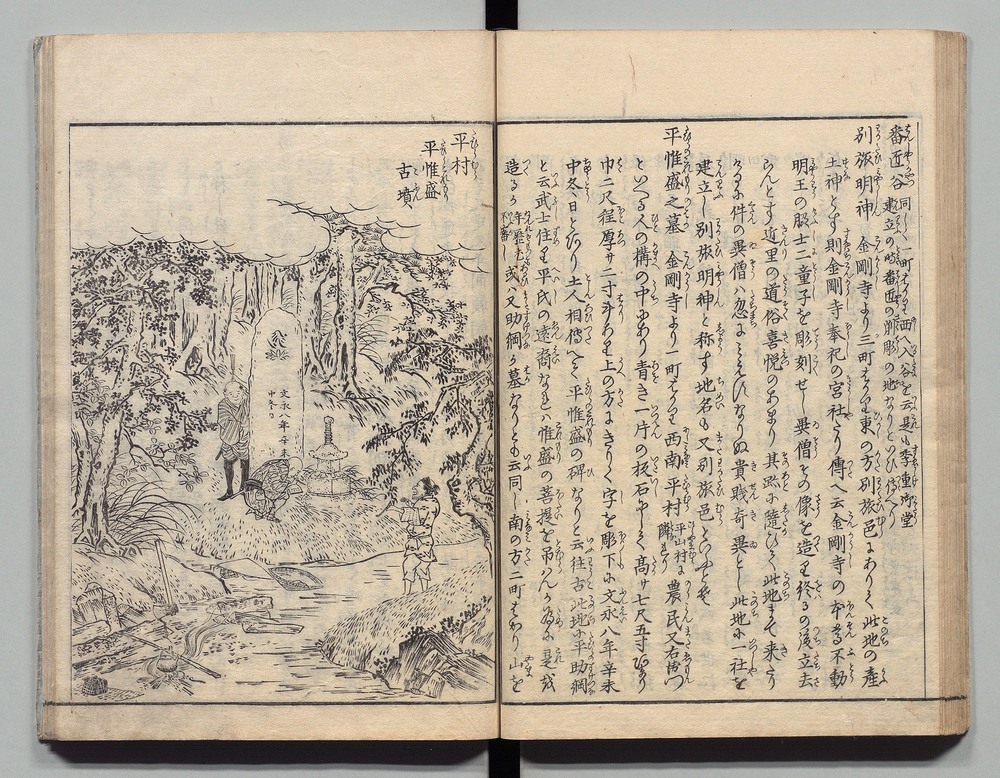 番匠谷 同しく一町はかり西の入谷を云是も季重御堂
建立の時番匠の
別旅明神 金剛寺より三町はかり東の方別旅邑にありて此地の産
土神とす則金剛寺奉祀の宮社たり傳へ云金剛寺の本尊不動
明王の脇士二童子を彫刻せし異僧その像を造り終るの後立去
らんとす近里の道俗喜悦のあまり其跡に随ひて此地まて来り
なるに件の異僧は忽にみえすなりぬ貴賤奇異とし此地に一社を
建立し別旅明神と称す地名も又別旅邑といふとそ
平惟盛之墓 金剛寺より一町はかり西南平村 平山村に隣れり 農民又右衛門
といへる人の構の中にあり青き一片の板石にして高サ七尺五寸はかり
巾二尺程厚サ二寸斗あり上の方にきりく字を彫下に文永八年辛未
中冬日とあり土人相傳へて平惟盛の碑なりと云往古此地に平助綱
と云武士住り平氏の遠裔なれは惟盛の菩提を吊んか為に是を
造るか 年歴 不審し 或は又助綱か墓なりとも云同し南の方二町はかり山を
平村
平惟盛
古墳
文永八年辛未
中冬日